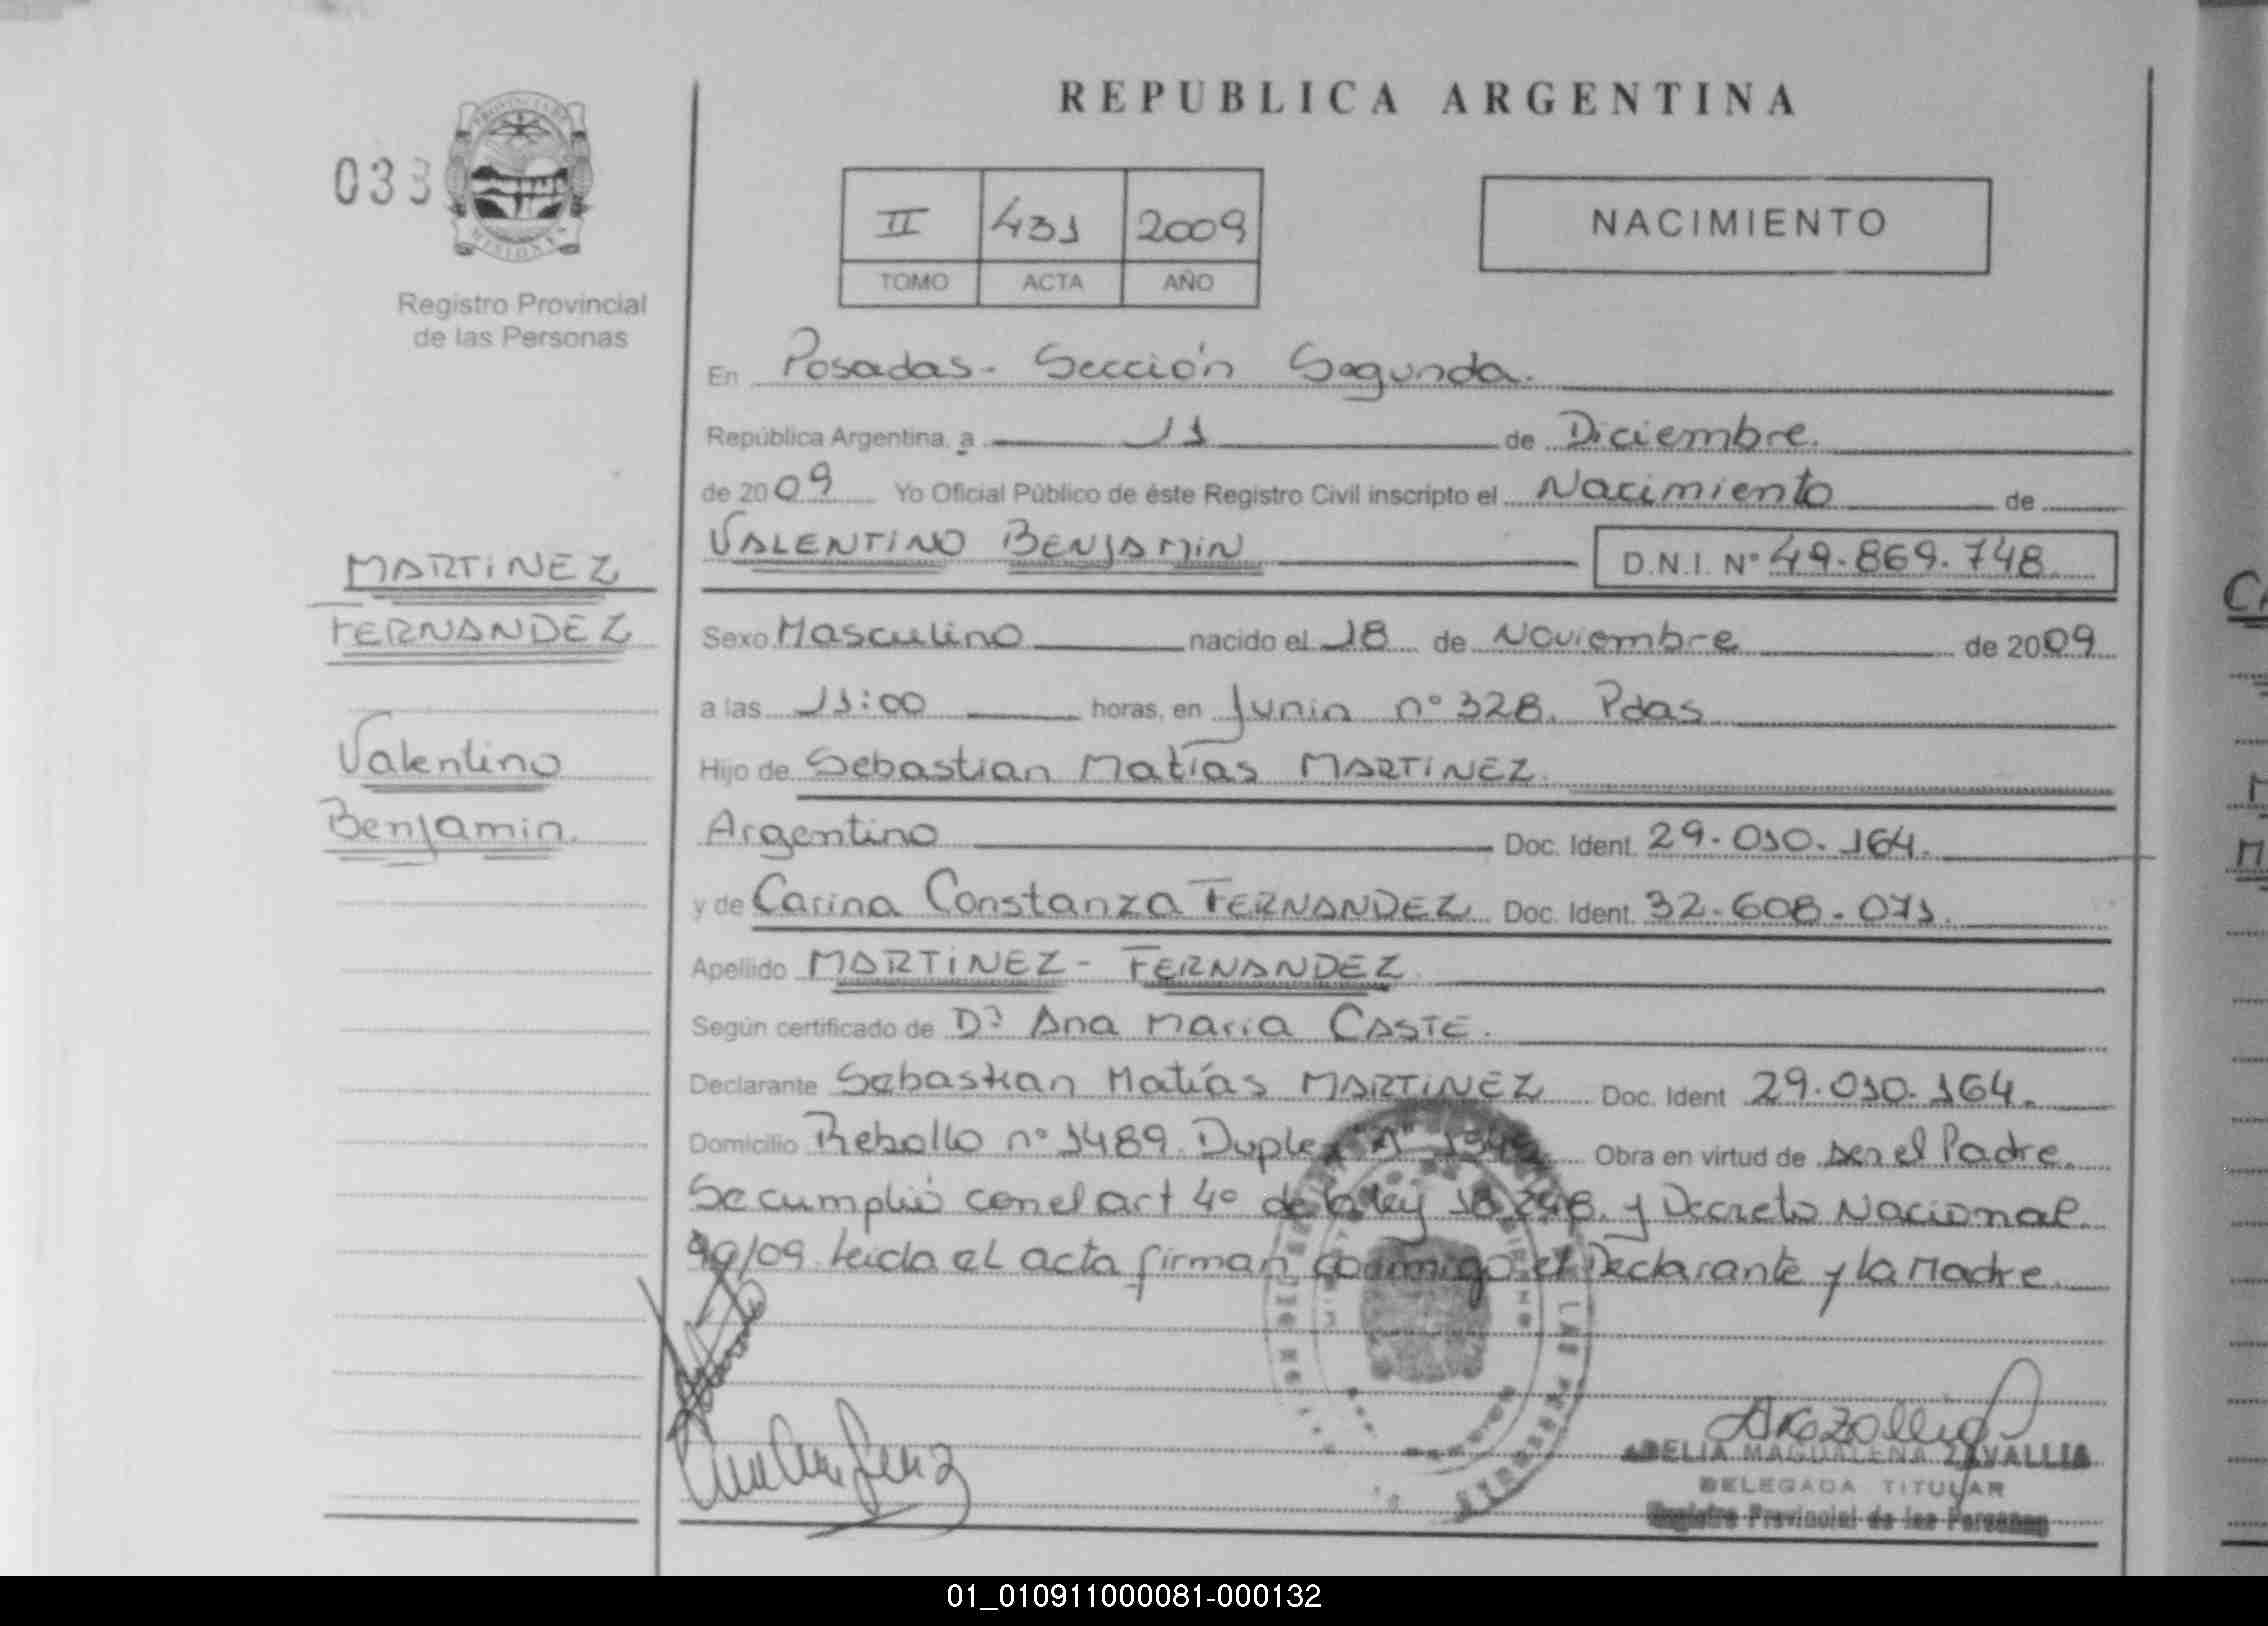 REPUBLICA ARGENTINA
033
PROVINCIA DE
MISIONES
Registro Provincial
de las Personas
II 431 2009
TOMO ACTA AÑO
NACIMIENTO
En Posadas - Sección Segunda.
República Argentina, a 11 de Diciembre.
de 2009 Yo Oficial Público de éste Registro Civil inscripto el Nacimiento de
VALENTINO BENJAMIN D.N.I. Nº 49.869.748
MARTINEZ
FERNANDEZ
Valentino
Benjamin.
Sexo Masculino nacido el 18 de Noviembre de 2009
a las 11:00 horas, en Junin nº 328. Pdas
Hijo de Sebastian Matías MARTINEZ
Argentino Doc. Ident. 29.010.164.
y de Carina Constanza FERNANDEZ Doc. Ident. 32.608.071.
Apellido MARTINEZ - FERNANDEZ
Según certificado de Dª Ana Maria CASTE.
Declarante Sebastian Matías MARTINEZ Doc. Ident 29.010.164.
Domicilio Rebollo nº 1489. Duplex Obra en virtud de ser el Padre.
Se cumplió con el art 4º de la ley 18.248. y Decreto Nacional
90/09. Leida el acta firman conmigo el Declarante y la Madre
ADELIA MAGDALENA ZAVALLIA
DELEGADA TITULAR
Registro Provincial de las Personas
01_010911000081-000132